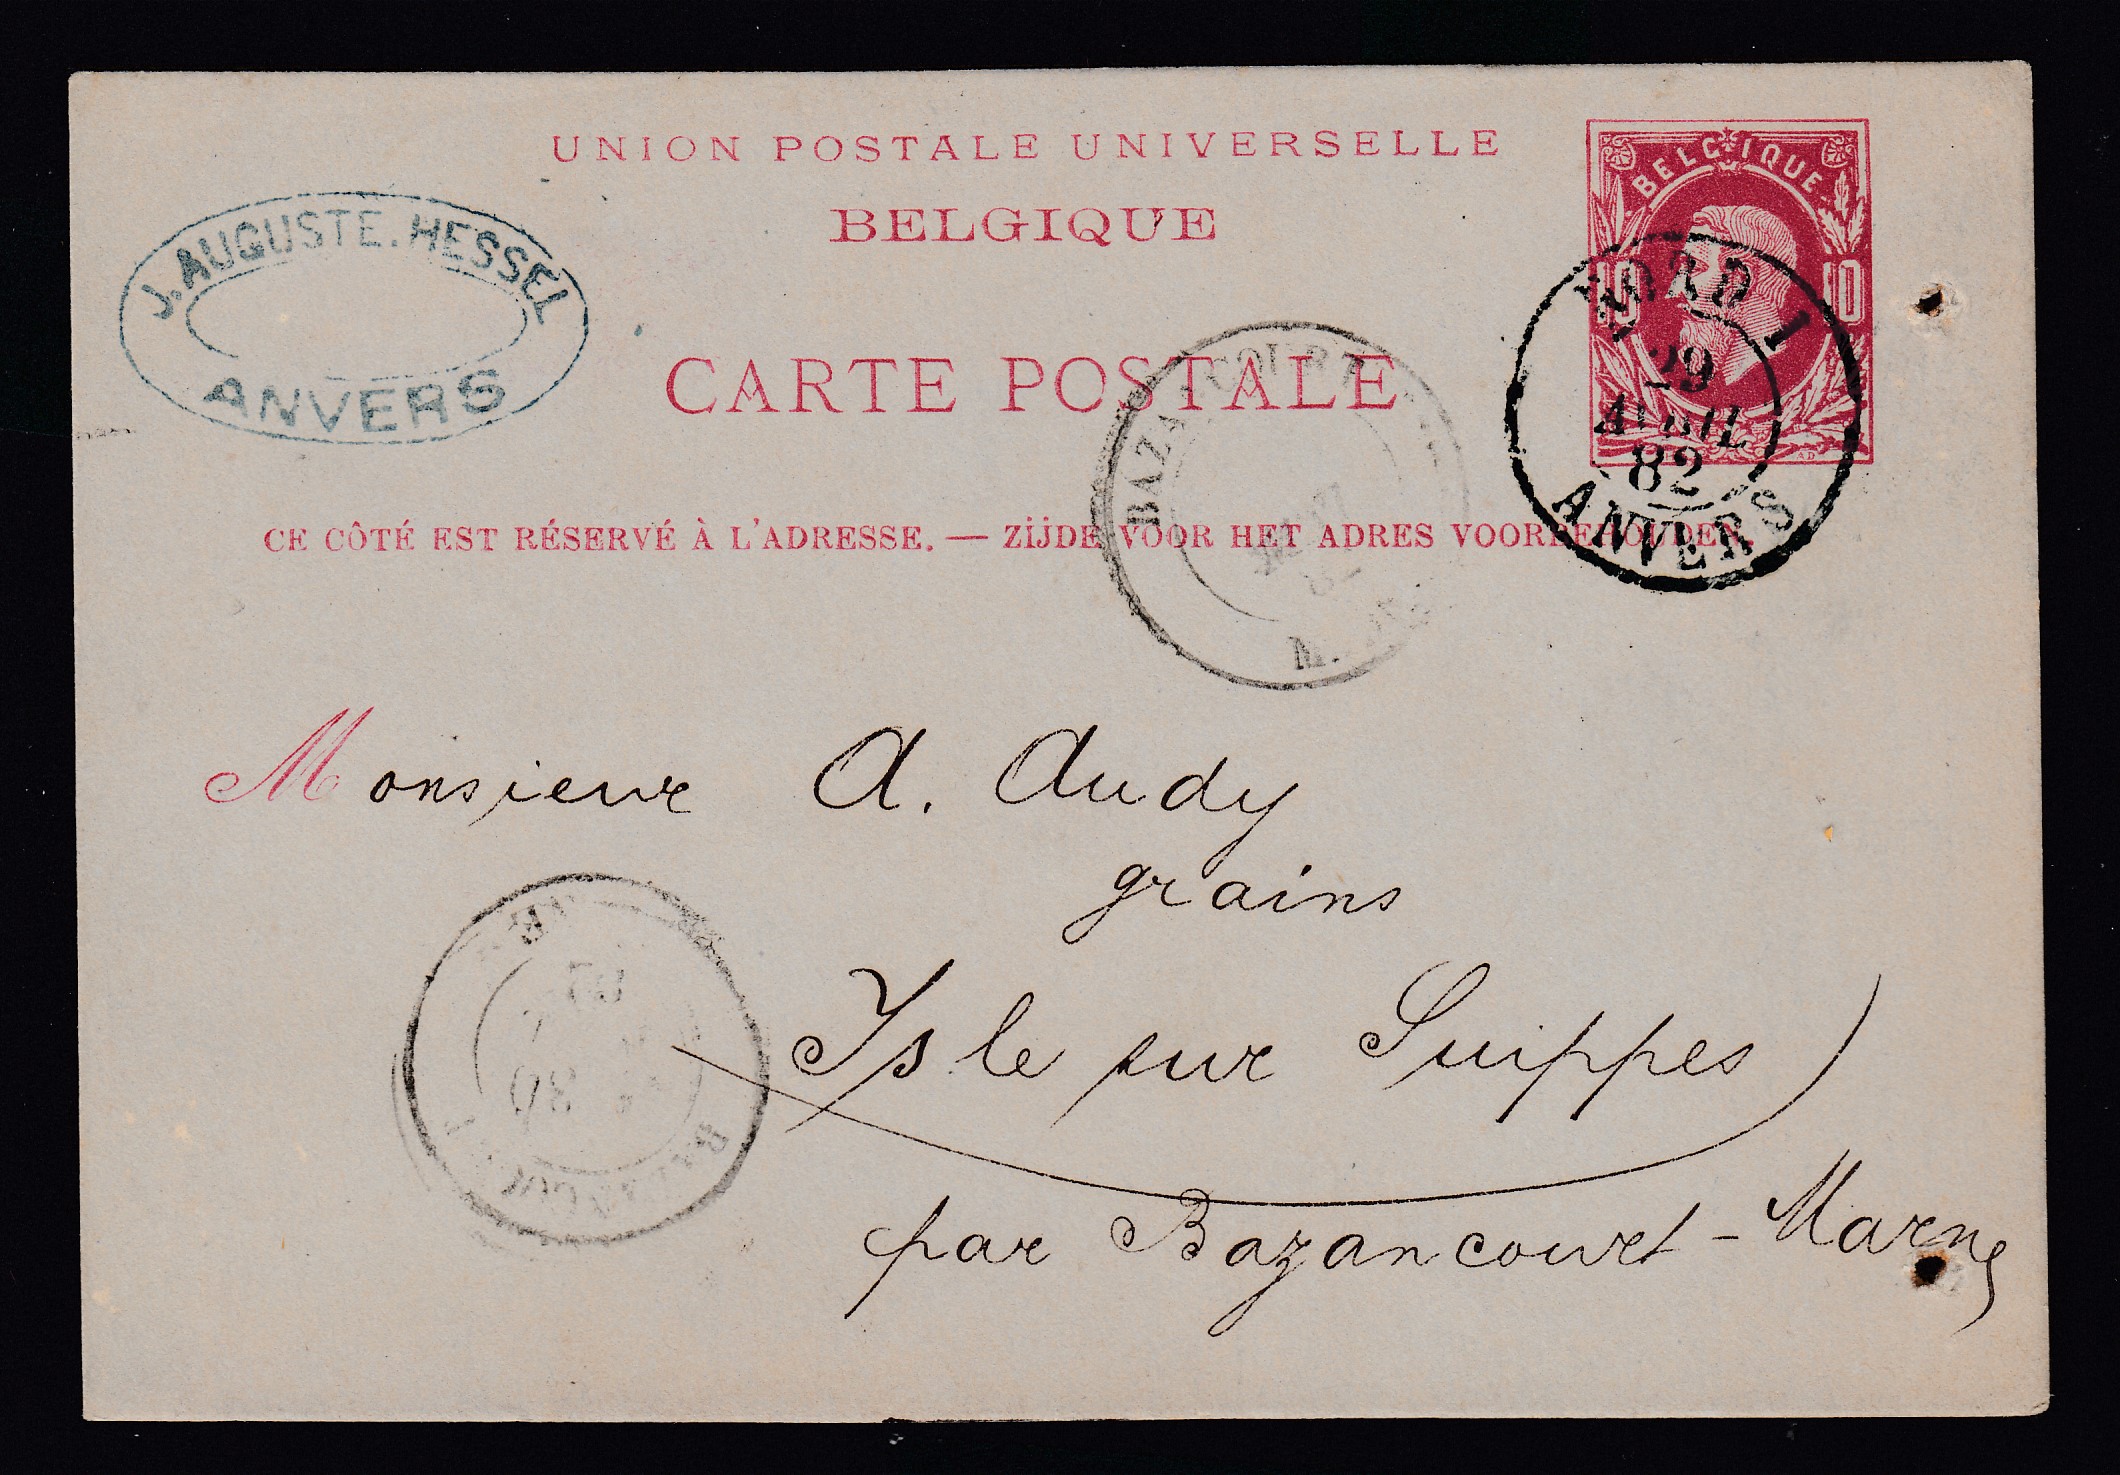 UNION POSTALE UNIVERSELLE
BELGIQUE
CARTE POSTALE
CE CÔTÉ EST RÉSERVÉ À L'ADRESSE. — ZIJDE VOOR HET ADRES VOORBEHOUDEN.
J. AUGUSTE. HESSEL
ANVERS
BELGIQUE
10 10
NORD 1
29
AVRIL
82
ANVERS
BAZANCOURT
Monsieur A. Audy
grains
Isle sur Suippes
par Bazancourt - Marne
30